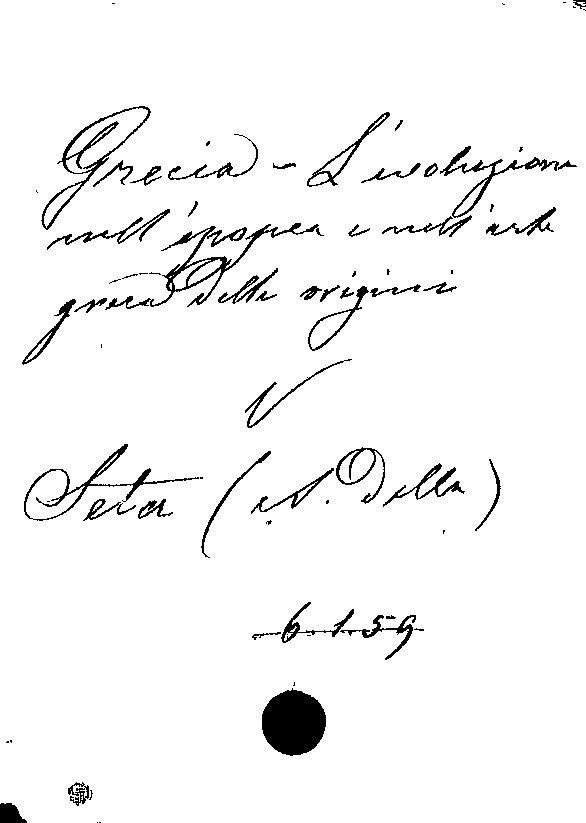 Grecia - L'evoluzione
nell'epopea e nell'arte
greca delle origini
V
Seta (A. Della)
6.1.59